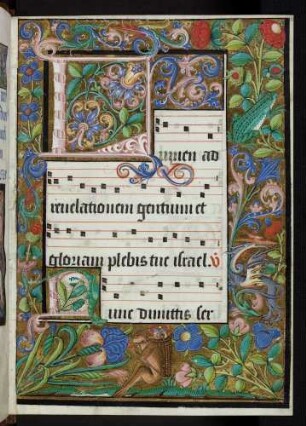 Lumen ad
reuelationem gentium et
gloriam plebis tue israel. V
Nunc dimittis ser